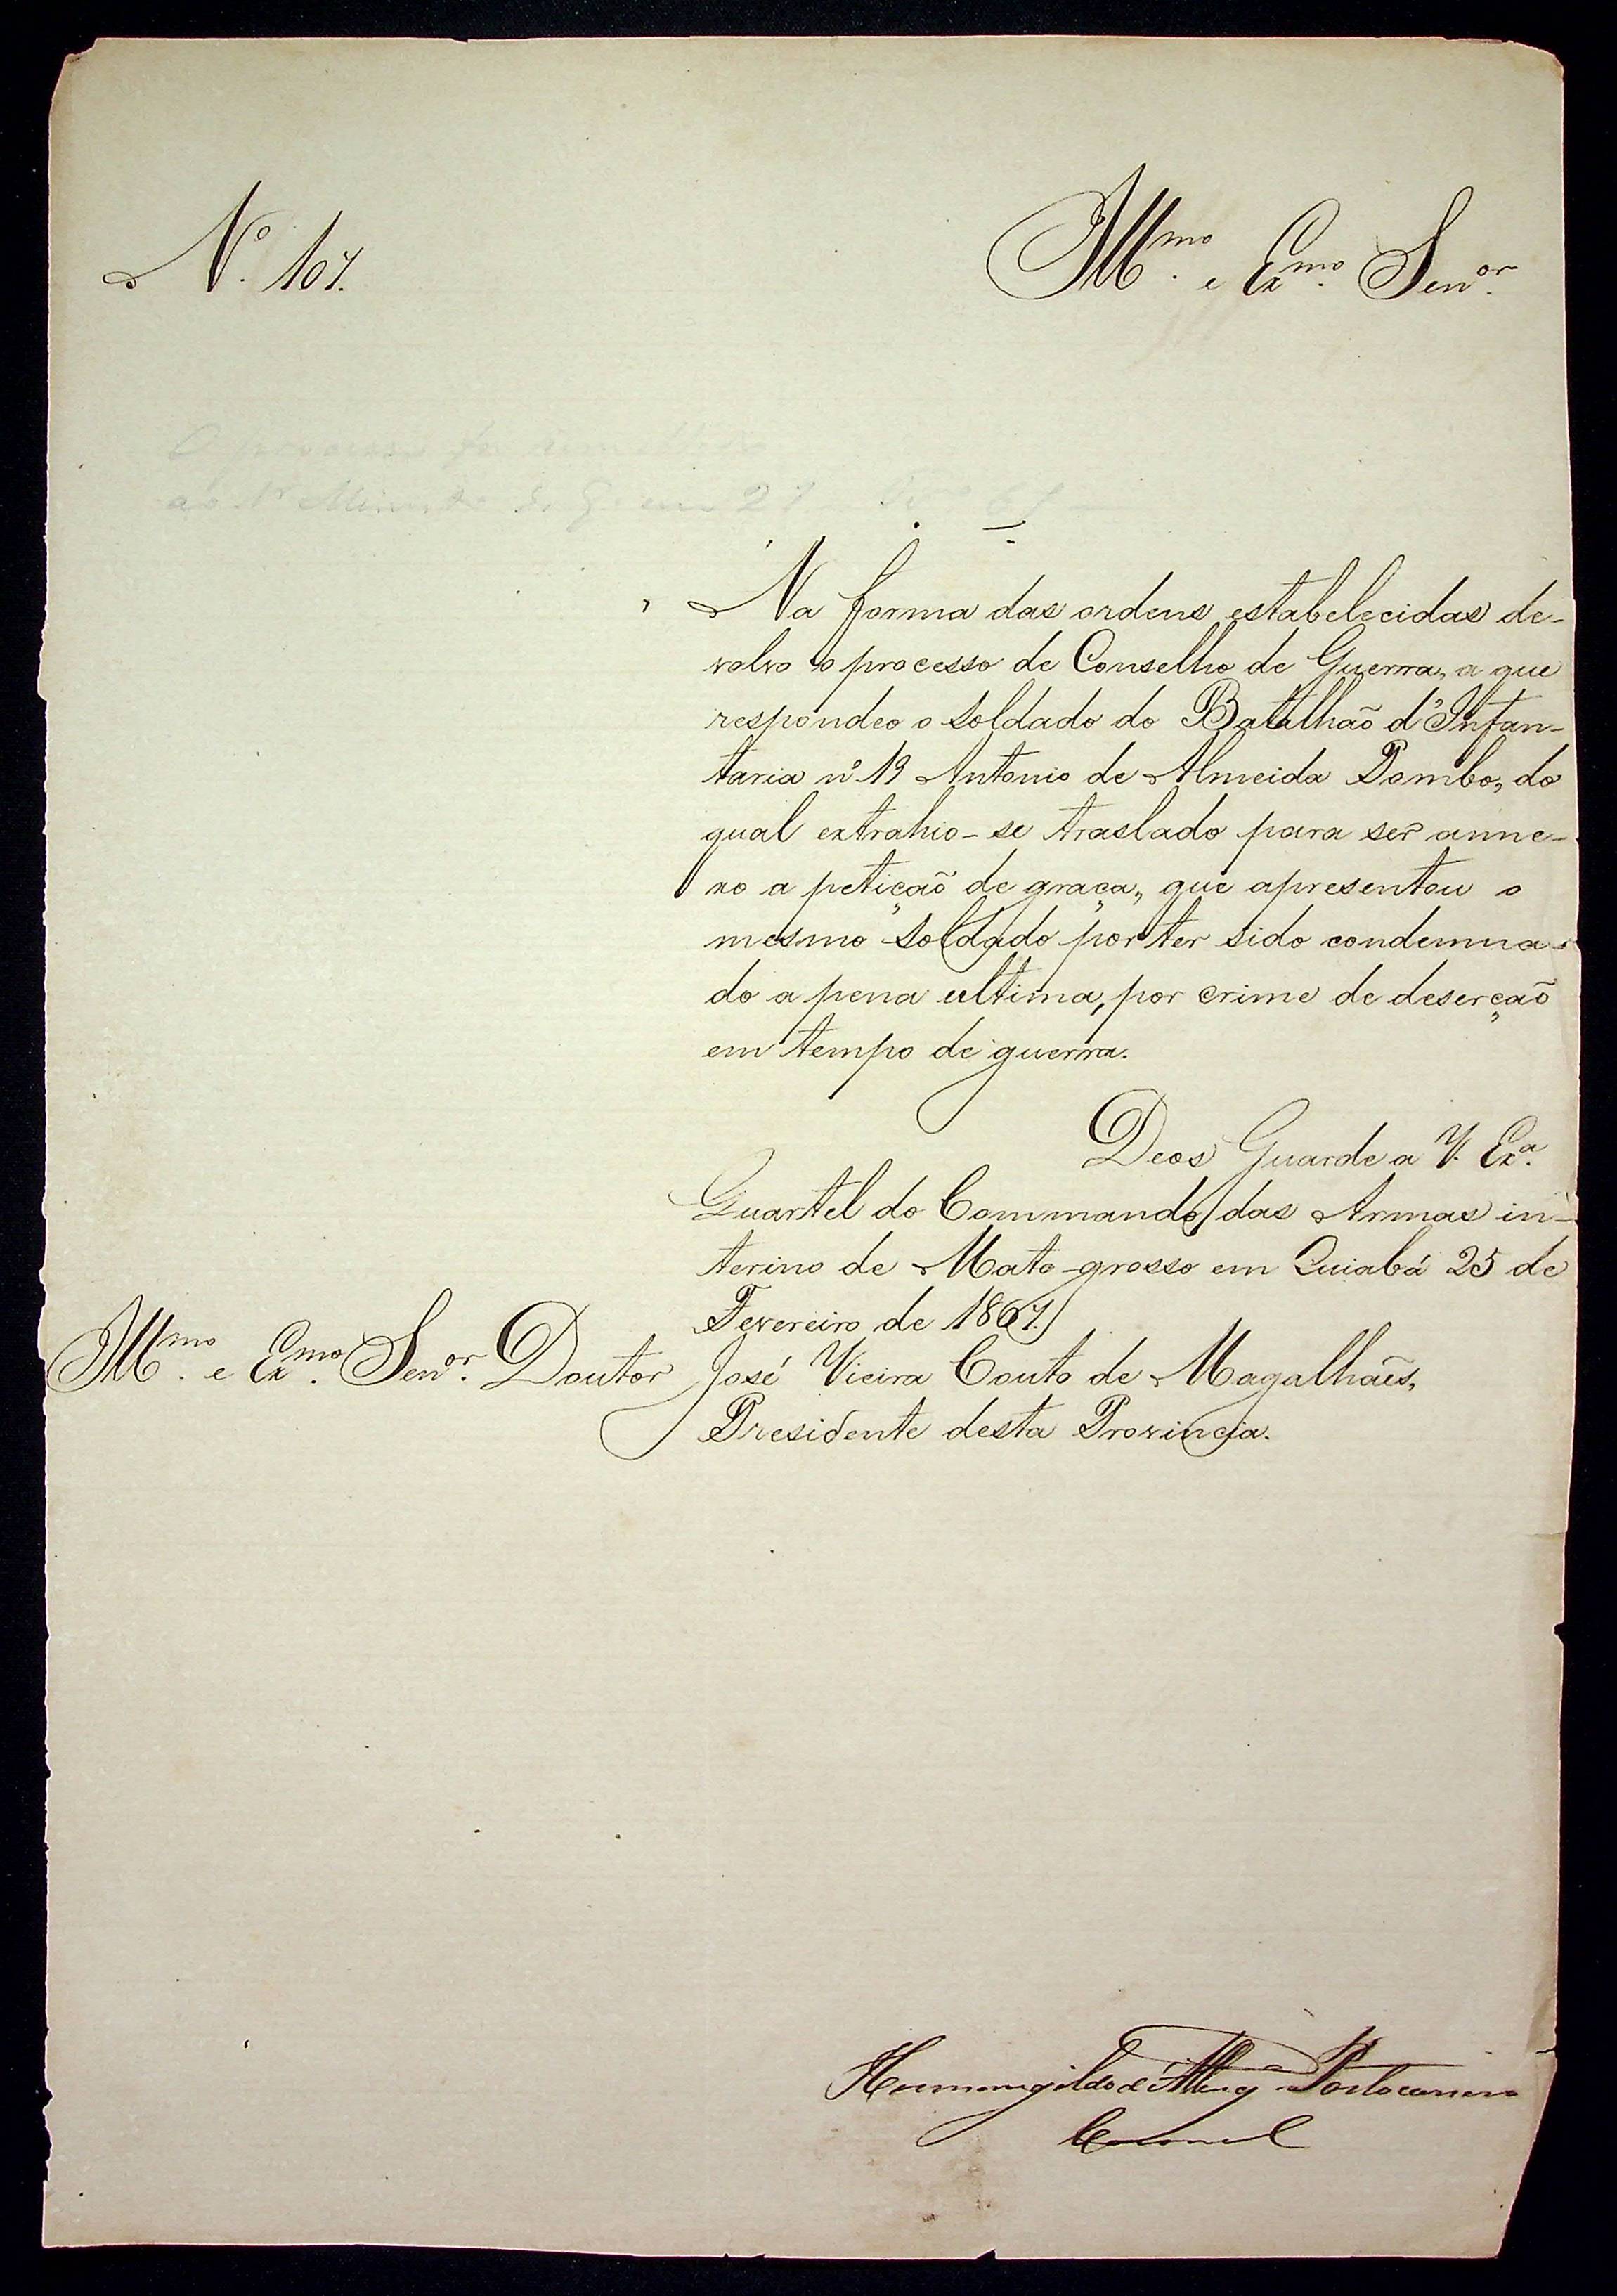 Nº 107.
Illmo. e Exmo. Senor.
O processo foi remettido
ao Sr Ministro da G. em 27 Fevº 67
Na forma das ordens estabelecidas de-
volvo o processo de Conselho de Guerra, a que
respondeo o soldado do Batalhão d'Infan-
taria nº 19 Antonio de Almeida Pombo, do
qual extrahio-se traslado para ser anne-
xo a petição de graça, que apresentou o
mesmo soldado por ter sido condemna-
do a pena ultima, por crime de deserção
em tempo de guerra.
Deos Guarde a V. Exa.
Quartel do Commando das Armas in-
terino de Mato-grosso em Cuiabá 25 de
Fevereiro de 1867.
Illmo. e Exmo. Senor. Doutor José Vieira Couto de Magalhães,
Presidente desta Provincia.
Hermenegildo d'Albuqe Portocarrero
Coronel